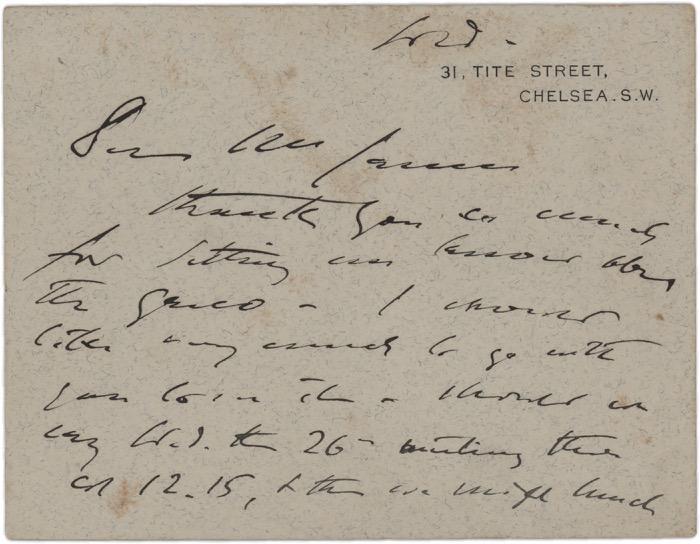 Wed.
31, TITE STREET,
CHELSEA. S.W.
Dear Mrs James
thank you so much
for letting me know about
the Greco - I should
like very much to go with
you to see it - should we
say Wed. the 26th meeting there
at 12.15, & then we might lunch